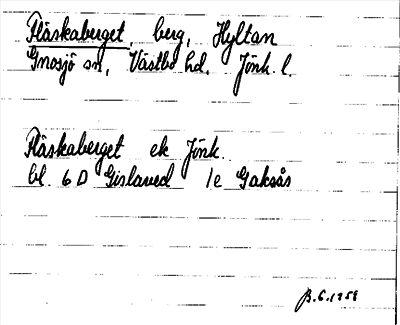 Fläskaberget, berg, Hyltan
Gnosjö sn, Västbo hd, Jönk. l.
Fläskaberget ek Jönk.
bl. 6 D Gislaved 1e Gaksås
B.G. 1958